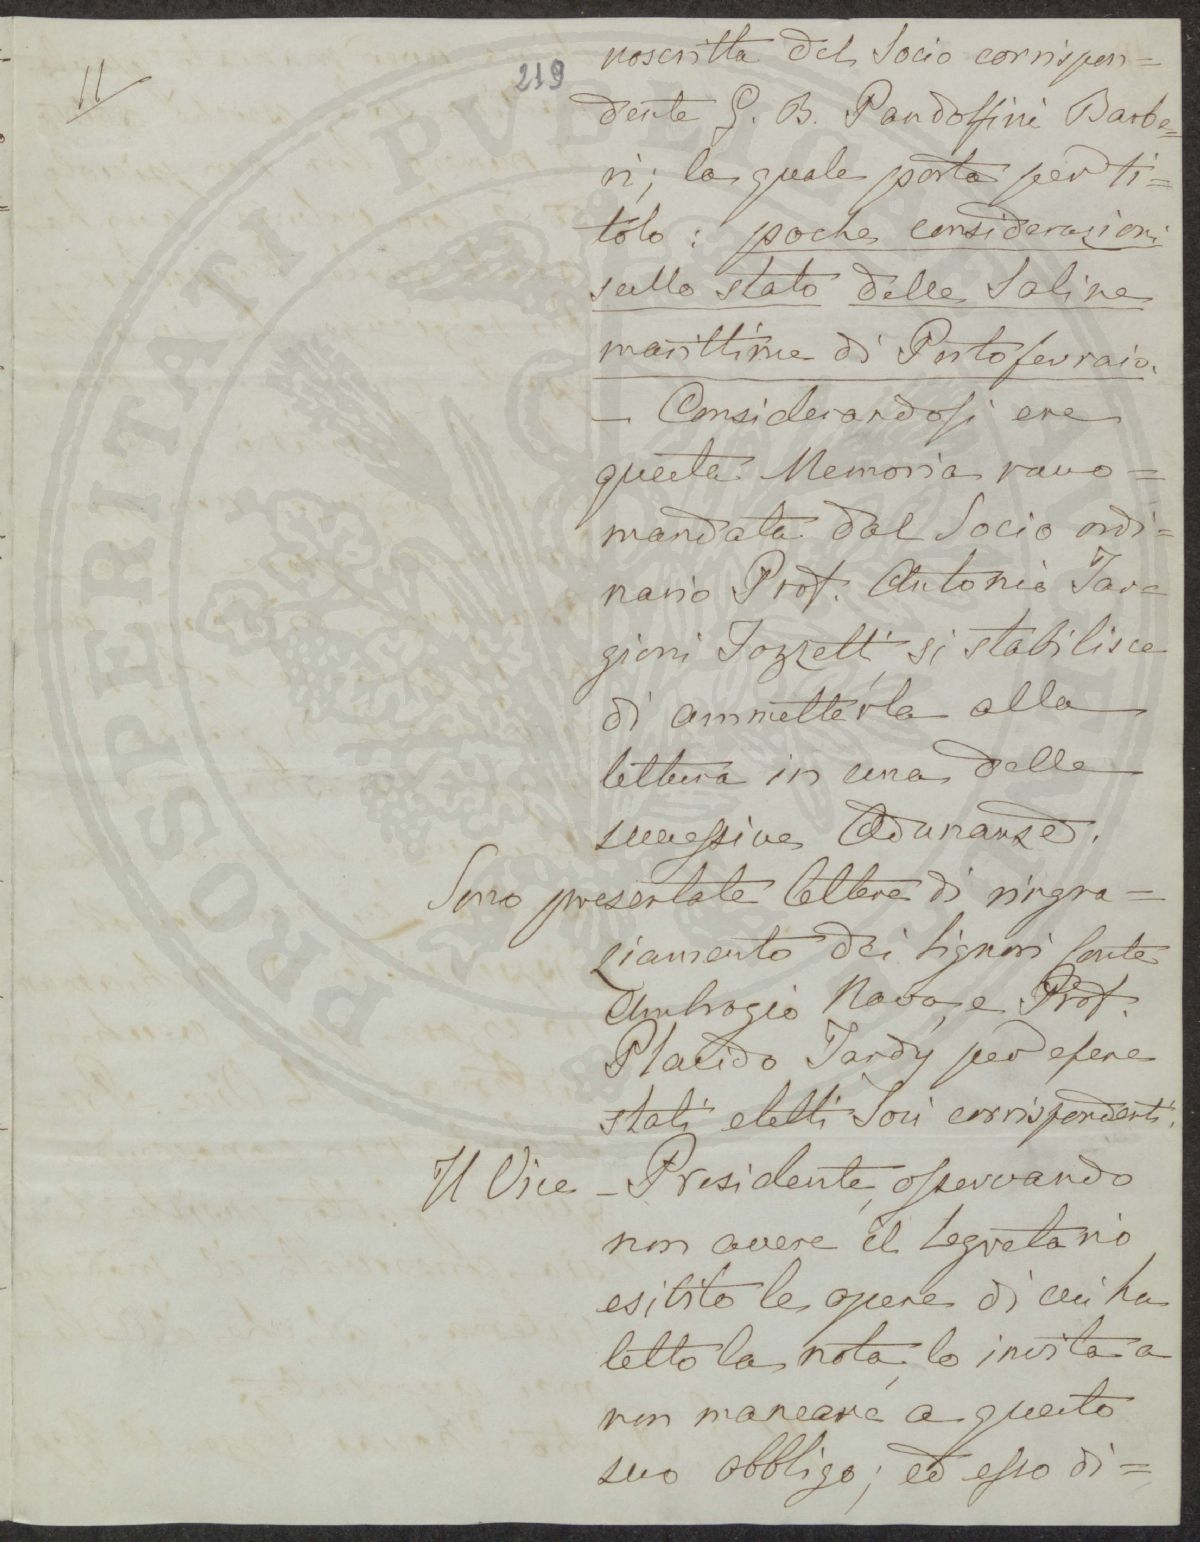 11
219
noscritta del Socio corrispon=
dente G. B. Pandolfini Barbe=
ri; la quale porta per ti=
tolo: poche considerazioni
sullo stato delle Saline
marittime di Portoferraio.
— Considerandosi ere
questa Memoria racco=
mandata dal Socio ordi=
nario Prof. Antonio Tar=
gioni Tozzetti si stabilisce
di ammetterla alla
lettura in una delle
successive Adunanze.
Sono presentate lettere di ringra=
ziamento dei Signori Conte
Ambrogio Nava, e Prof.
Placido Tardy per essere
stati eletti Soci corrispondenti.
Il Vice-Presidente, osservando
non avere il Segretario
esibito le opere di cui ha
letto la nota, lo invita a
non mancare a questo
suo obbligo; ed esso di=
PROSPERITATI PUBLICAE